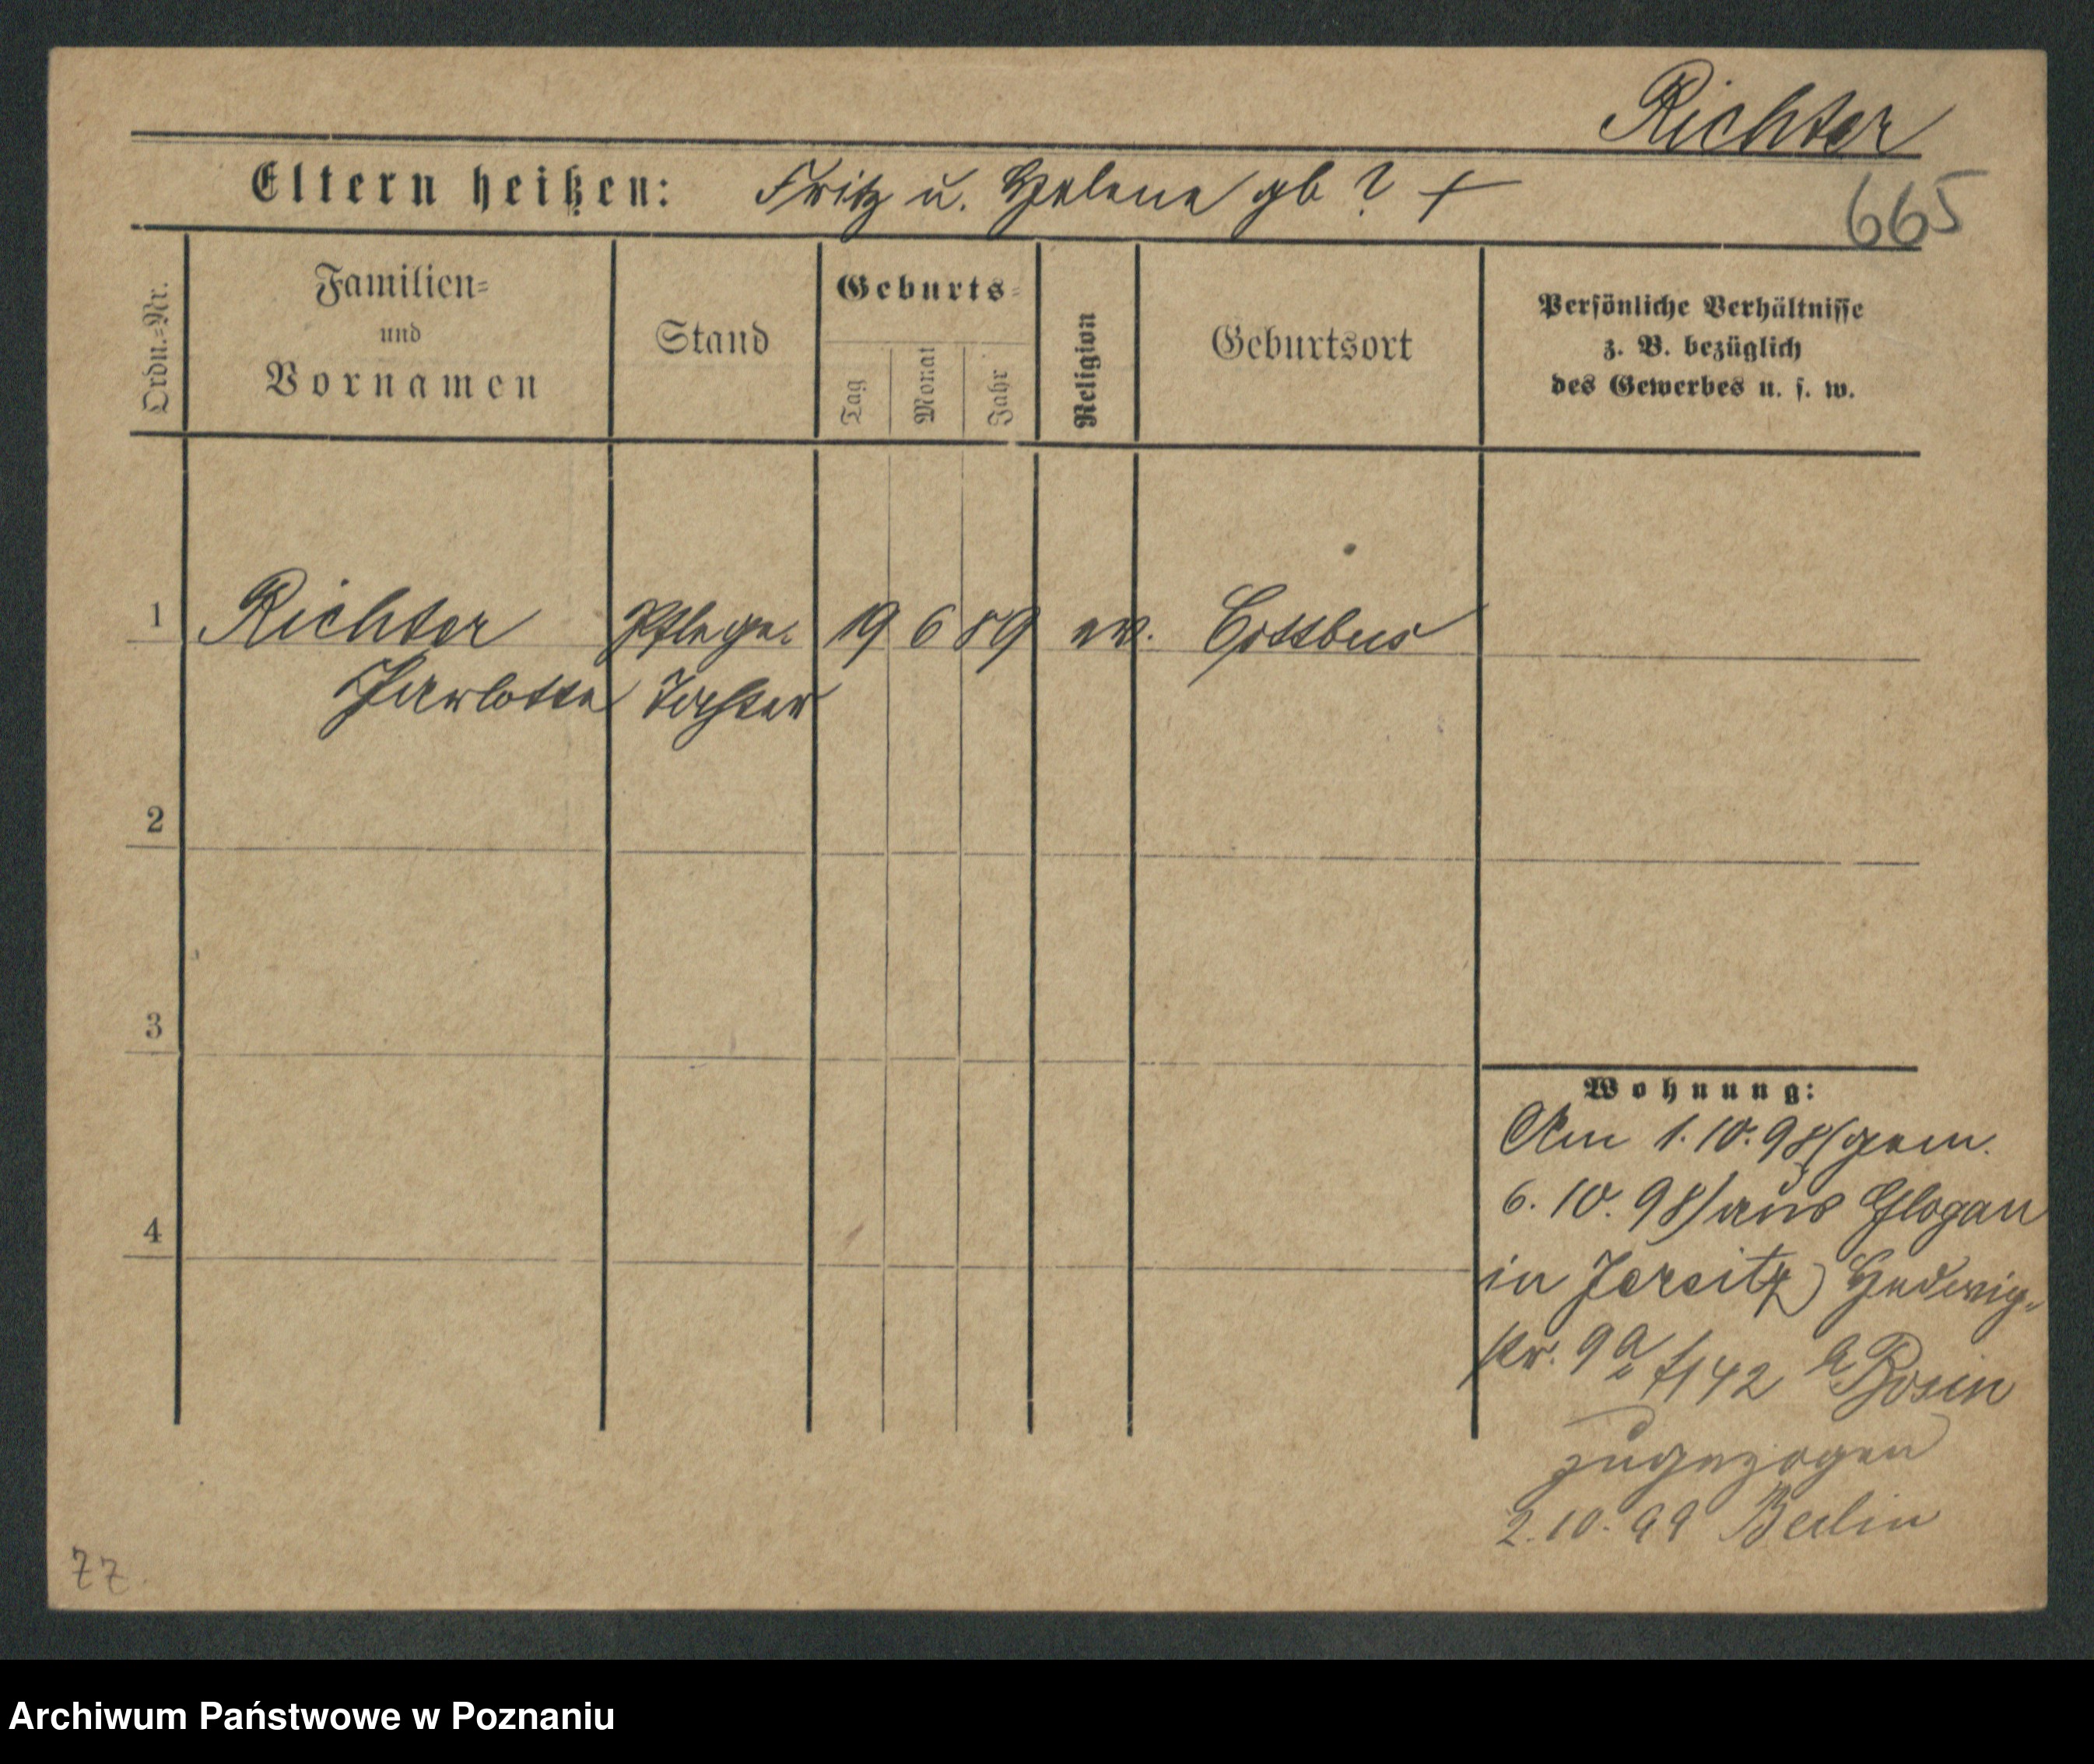 Richter
665
Eltern heißen: Fritz u. Helene gb ? +
Ordn.-Nr.
Familien-
und
Vornamen
Stand
Geburts-
Tag
Monat
Jahr
Religion
Geburtsort
Persönliche Verhältnisse
z. B. bezüglich
des Gewerbes u. s. w.
1 Richter Pflege- 19 6 89 ev. Cottbus
Charlotte Tochter
2
3
4
Wohnung:
Am 1.10.98 (gem.
6.10.98) aus Glogau
in Jersitz Hedwig-
str. 9a 142 Posin
zugezogen
2.10.99 Berlin
ZZ
Archiwum Państwowe w Poznaniu